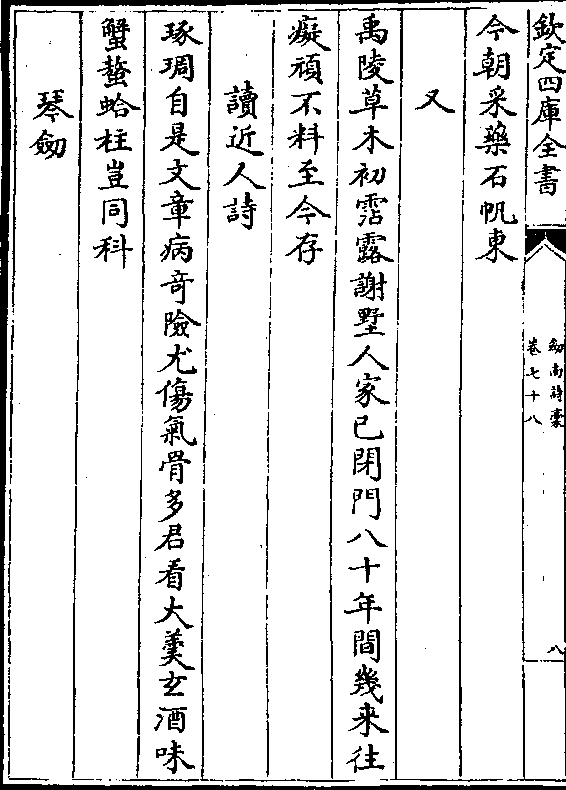 欽定四庫全書
劒南詩稾
卷七十八
八
今朝采藥石帆東
又
禹陵草木初霑露謝墅人家已閉門八十年間幾来往
癡頑不料至今存
讀近人詩
琢琱自是文章病奇險尤傷氣骨多君看大羮玄酒味
蟹螯蛤柱豈同科
琴劒